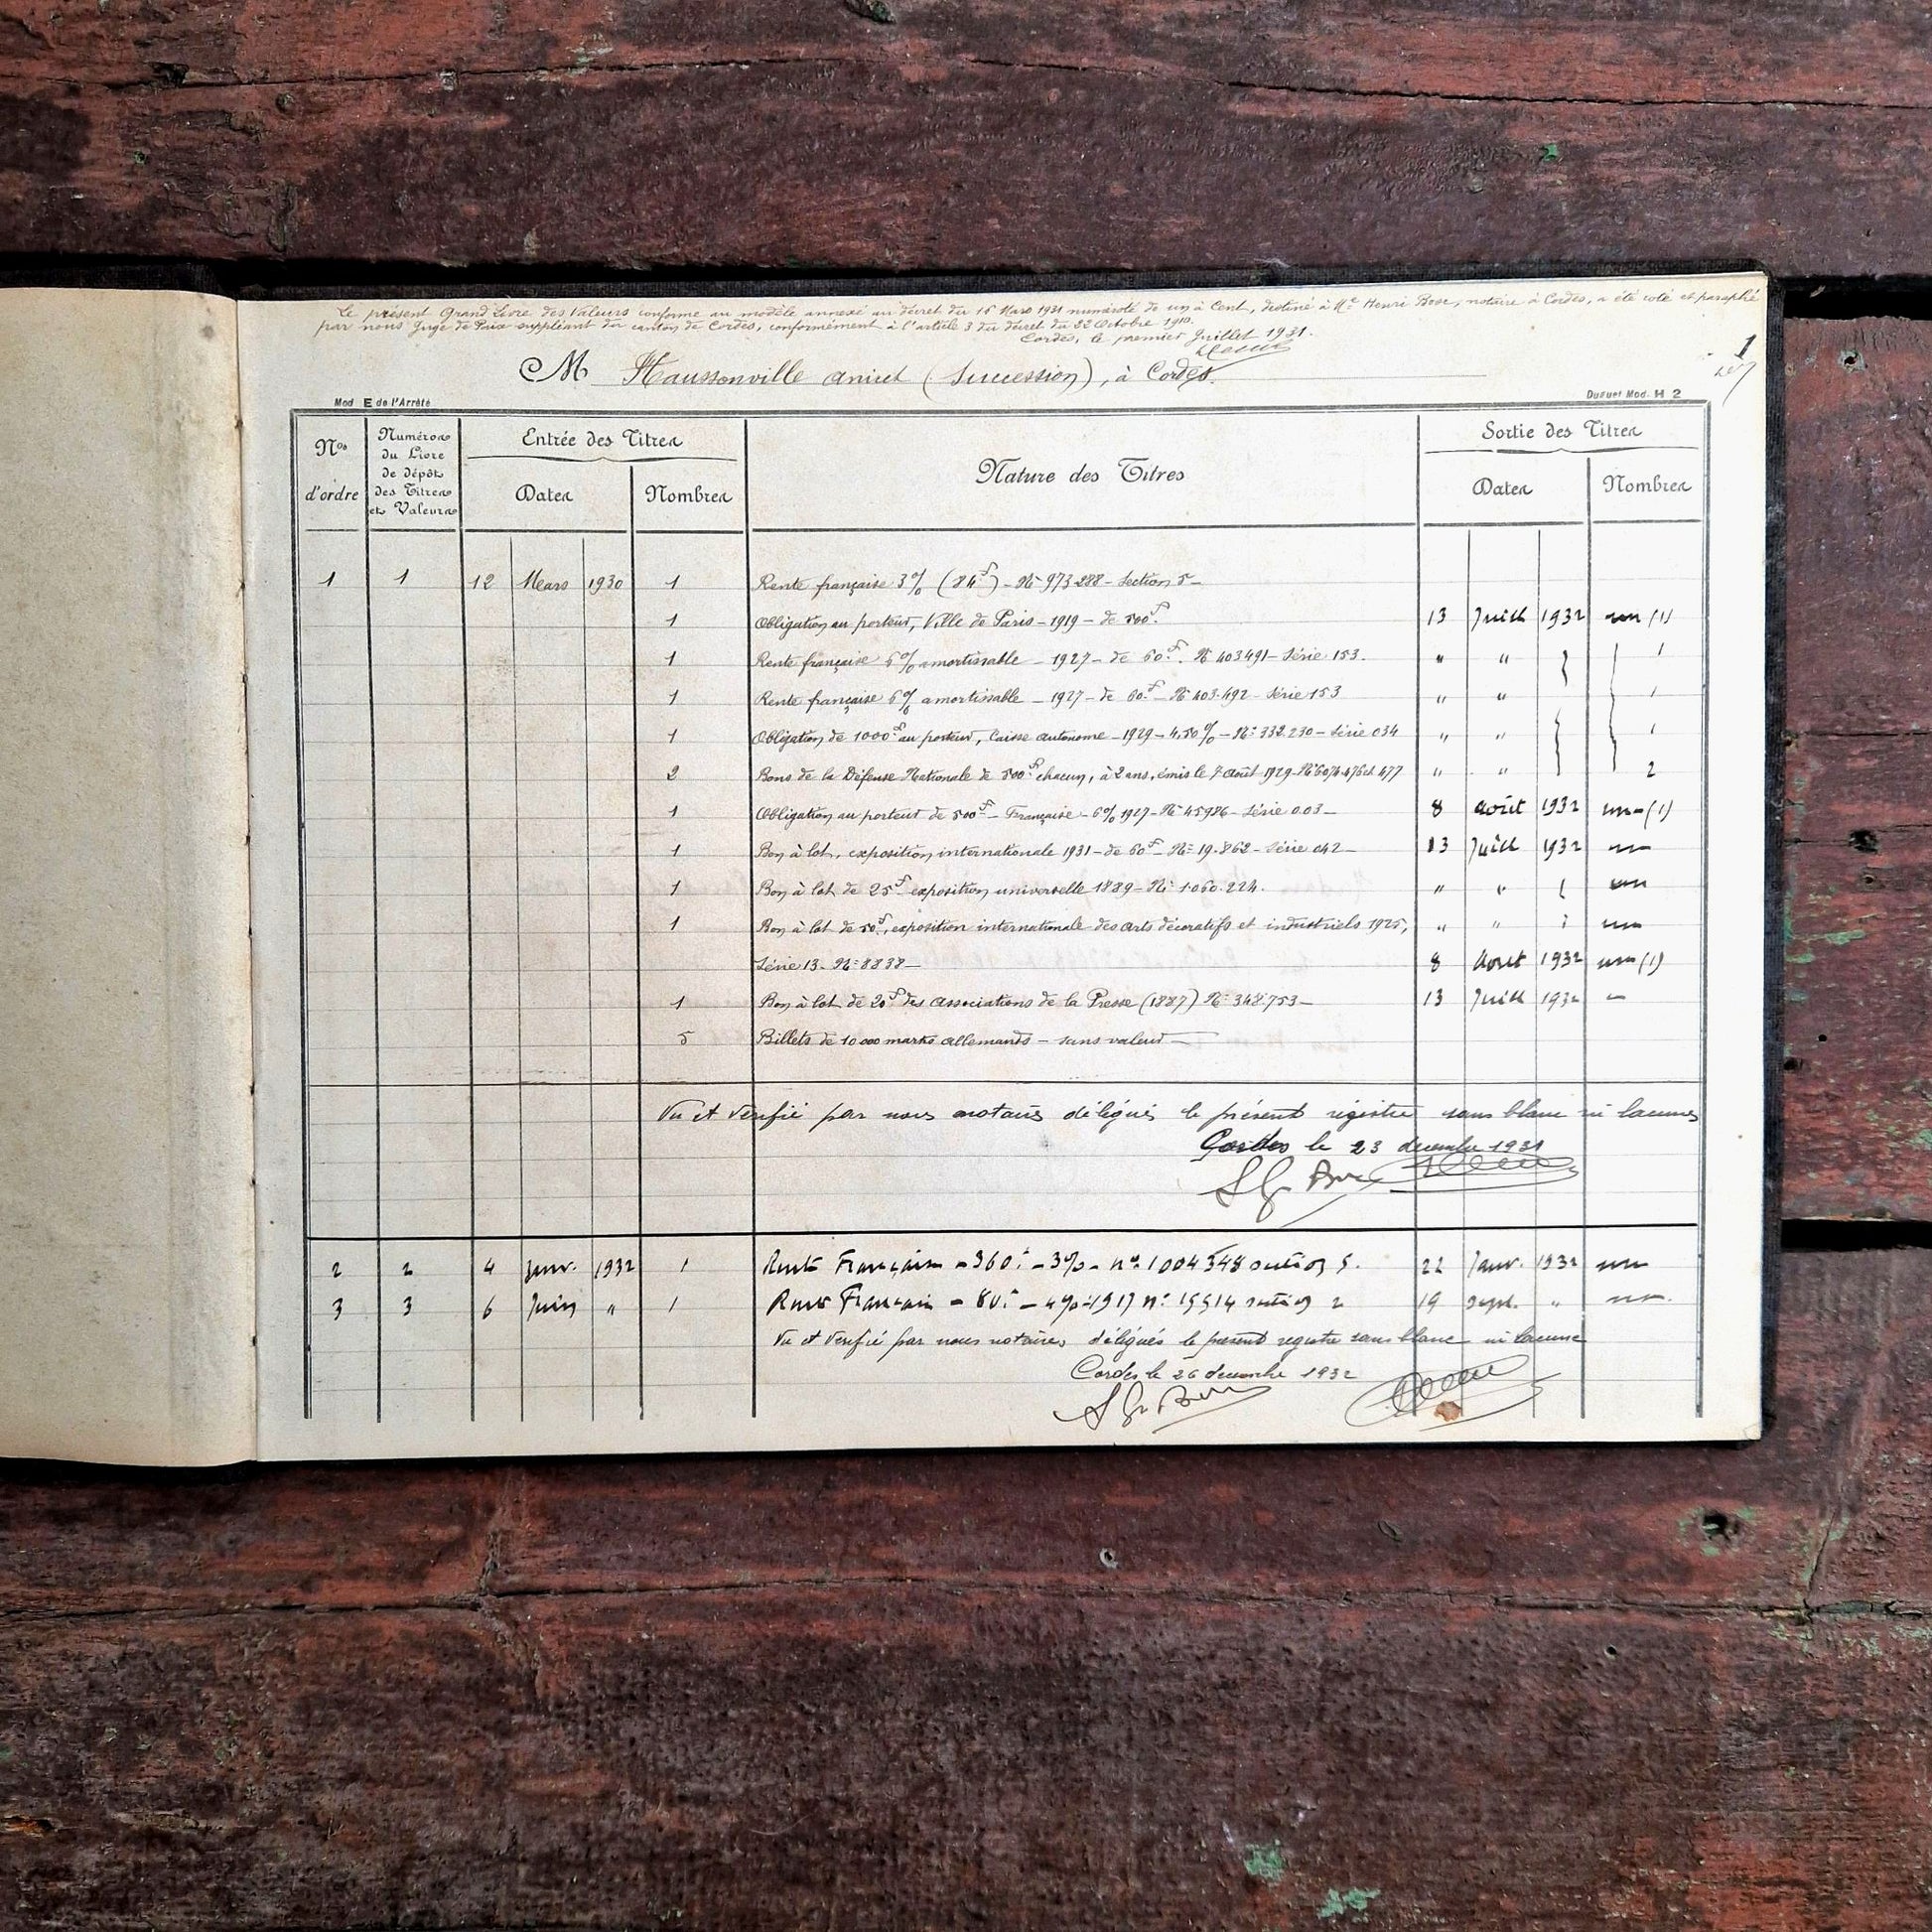 Le présent Grand Livre des Valeurs conforme au modèle annexé au décret du 16 Mars 1931 numéroté de un à Cent, destiné à Me Henri Bosc, notaire à Cordes, a été coté et paraphé
par nous Juge de Paix suppléant du canton de Cordes, conformément à l'article 3 du décret du 22 Octobre 1910.
Cordes, le premier Juillet 1931.
1
M Haussonville (Succession), à Cordes.
Mod E de l'Arrêté
Dufuet Mod. H 2
Nos d'ordre
Numéros du Livre de dépôt des Titres et Valeurs
Entrée des Titres
Dates
Nombres
Nature des Titres
Sortie des Titres
Dates
Nombres
1 1 12 Mars 1930 1 Rente française 3% (84f) - No 973288 - Section 5 -
1 Obligation au porteur, Ville de Paris - 1919 - de 500f 13 Juill 1932 un (1)
1 Rente française 6% amortissable - 1927 - de 60f. No 403491 - Série 153. " " 1
1 Rente française 6% amortissable - 1927 - de 60f - No 403.492 - Série 153 " " 1
1 Obligation de 1000f au porteur, Caisse autonome - 1929 - 4,50% - No 332.230 - Série 034 " " 1
2 Bons de la Défense Nationale de 500f chacun, à 2 ans, émis le 7 août 1929 - No 6074476 et 477 " " 2
1 Obligation au porteur de 500f - Française - 6% 1927 - No 45986 - Série 003 - 8 août 1932 un (1)
1 Bon à lot, exposition internationale 1931 - de 60f - No 19.862 - Série 042 - 13 Juill 1932 un
1 Bon à lot de 25f exposition universelle 1889 - No 1.060.224. " " un
1 Bon à lot de 50f, exposition internationale des arts décoratifs et industriels 1925, " " un
Série 13 - No 8838 - 8 Aout 1932 un (1)
1 Bon à lot de 20f des Associations de la Presse (1887) No 348.753 - 13 Juill 1932
5 Billets de 10000 marks allemands - sans valeur -
Vu et vérifié par nous notaires délégués le présent registre sans blanc ni lacunes
Cordes le 23 decembre 1931
2 2 4 Janv. 1932 1 Rente Française - 360f - 3% - no 1004348 section 5. 22 Janv. 1932 un
3 3 6 Juin " 1 Rente Française - 80f - 4% 1917 no 15514 section 2 19 sept. " un
Vu et vérifié par nous notaires, délégués le présent registre sans blanc ni lacune
Cordes le 26 decembre 1932